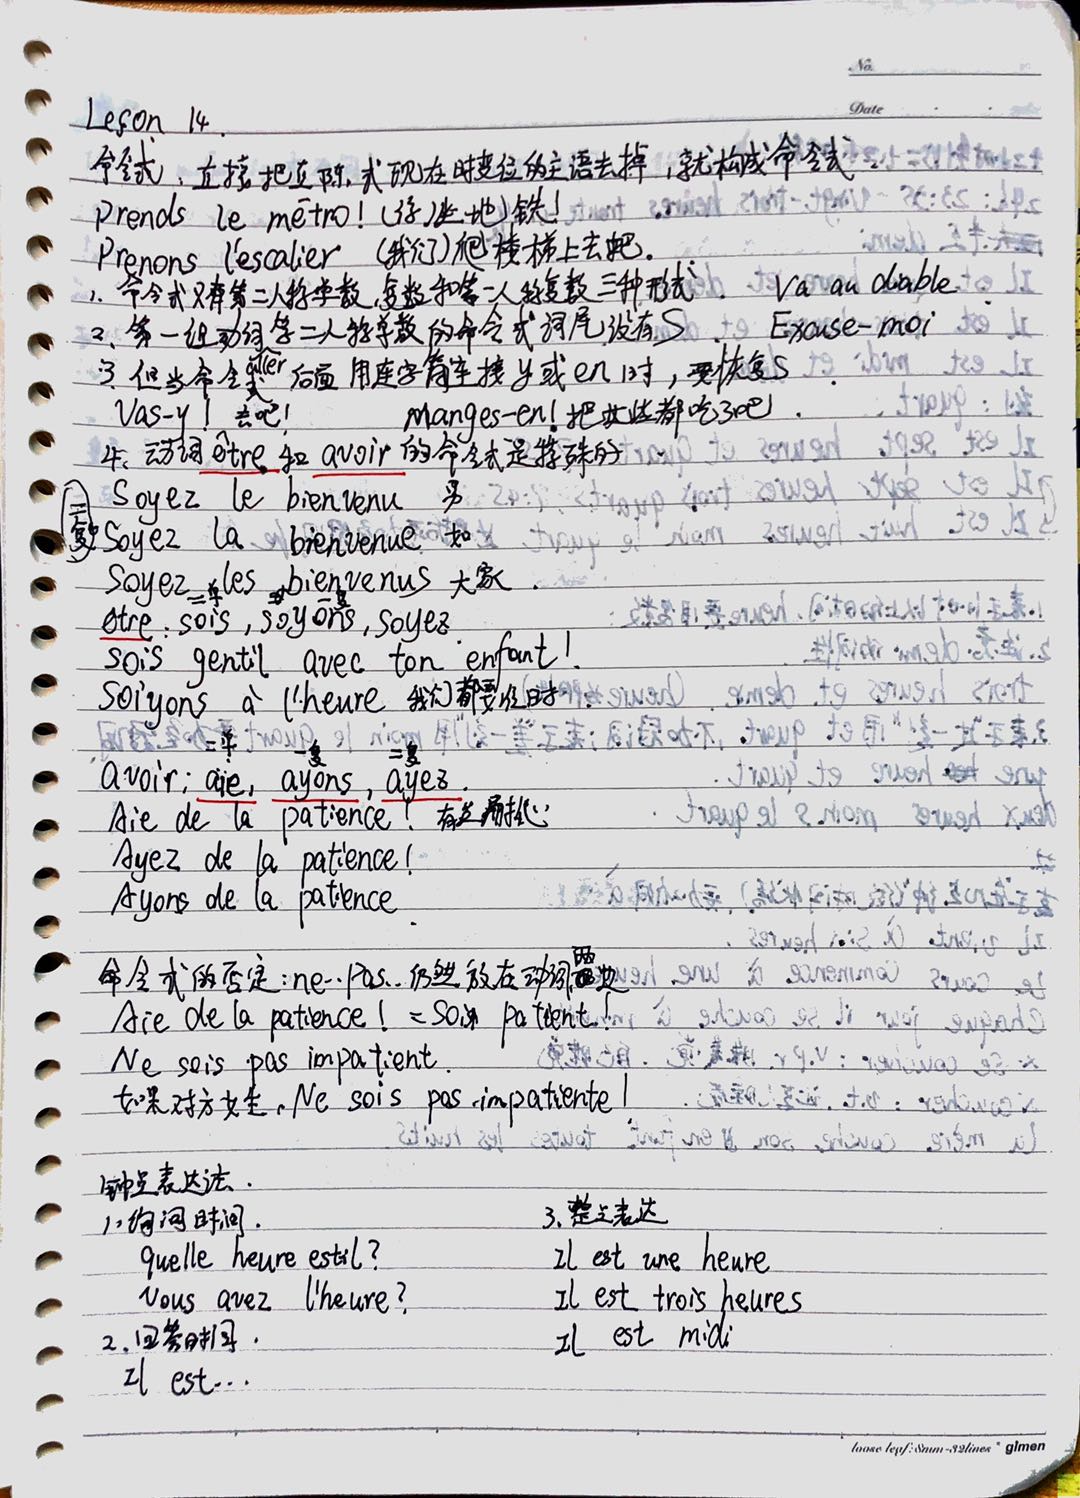 No.
Date
Leson 14.
命令式：直接把直陈式现在时变位的主语去掉，就构成命令式.
Prends le métro! (你)坐地铁!
Prenons l'escalier (我们)爬楼梯上去吧.
1. 命令式只有第二人称单数,复数和第一人称复数三种形式. Va au diable
2. 第一组动词第二人称单数的命令式词尾没有S. Excuse-moi
3. 但当命令式后面用连字符连接y或en时，要恢复S
aller
Vas-y! 去吧! Manges-en! 把这些都吃了吧.
4. 动词être和avoir的命令式是特殊的
Soyez le bienvenu 男
二复 Soyez la bienvenue 女
Soyez les bienvenus 大家.
二单 一复 二复
être: sois, soyons, soyez
sois gentil avec ton enfant!
Soiyons à l'heure 我们都要准时!
二单 一复 二复
avoir: aie, ayons, ayez.
Aie de la patience! 有点耐心
Ayez de la patience!
Ayons de la patience
命令式的否定: ne...pas...仍然放在动词两边
Aie de la patience! = Sois patient!
Ne sois pas impatient.
如果对方女生, Ne sois pas impatiente!
钟点表达法.
1. 询问时间.
quelle heure est il?
Vous avez l'heure?
2. 回答时间.
Il est...
3. 整点表达
Il est une heure
Il est trois heures
Il est midi
loose leaf: 8mm-32lines * glmen